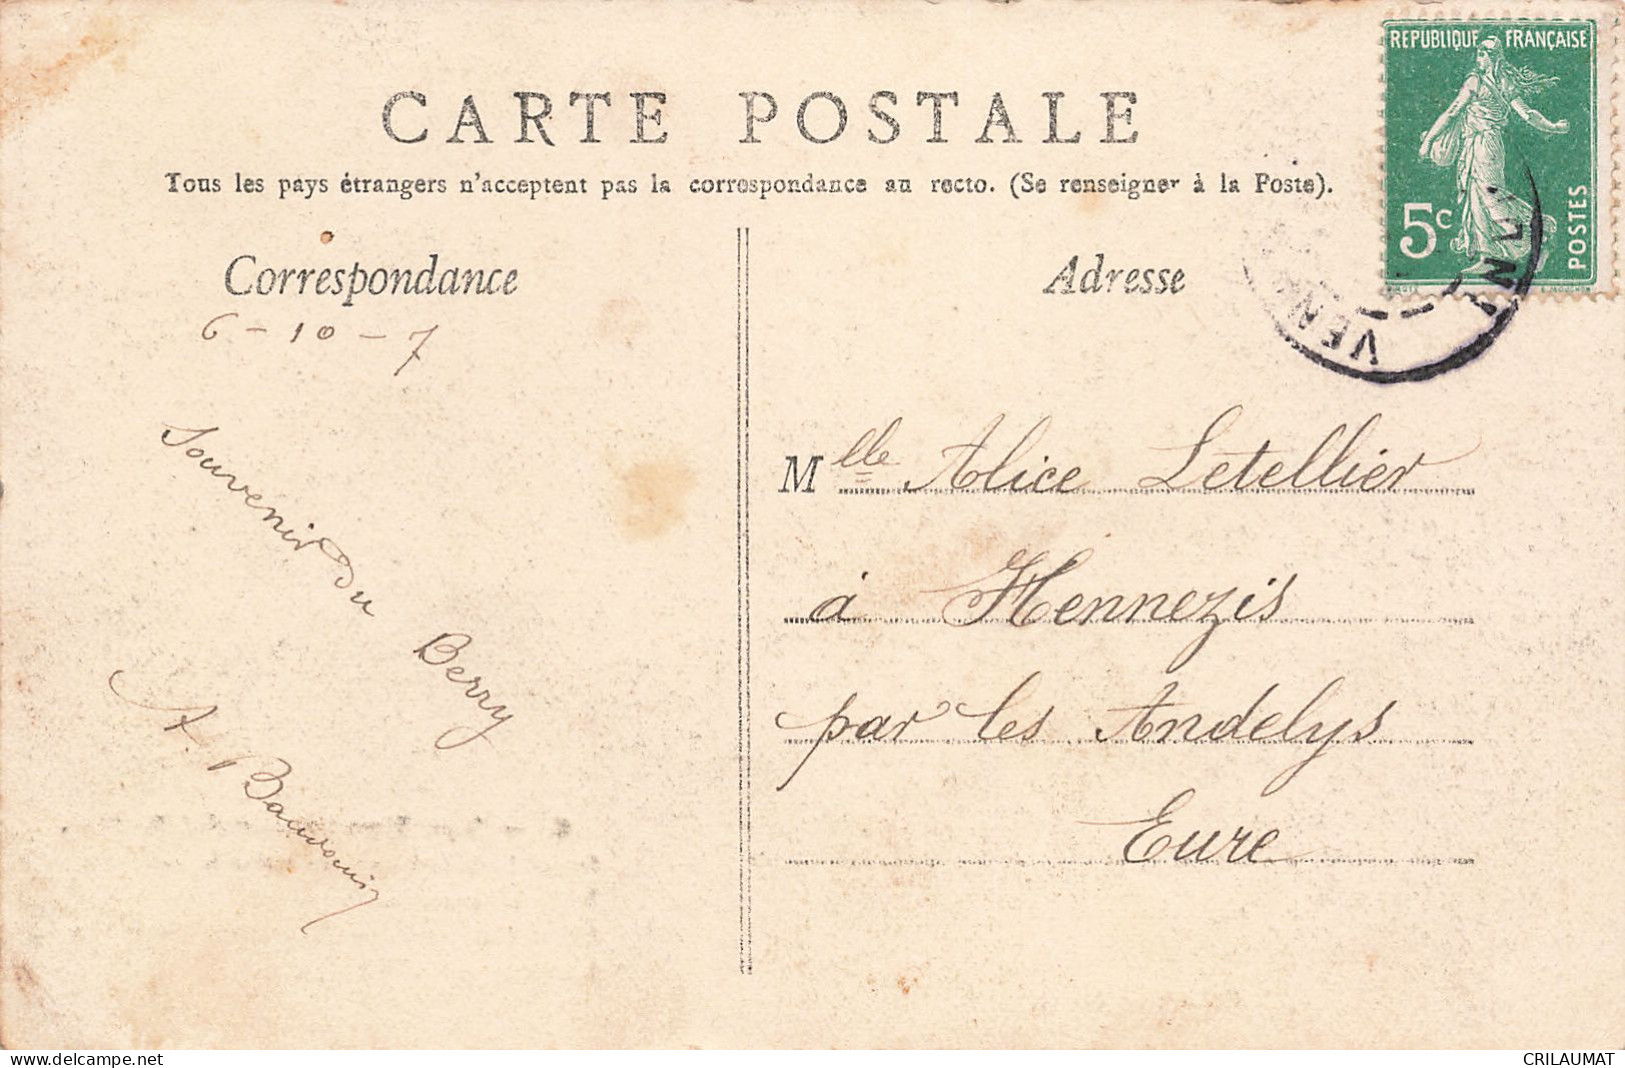 CARTE POSTALE
Tous les pays étrangers n'acceptent pas la correspondance au recto. (Se renseigner à la Poste).
REPUBLIQUE FRANÇAISE
5c
POSTES
Correspondance
6-10-7
Souvenir du Berry
A. Baudouin
Adresse
Mlle Alice Letellier
à Hennezis
par les Andelys
Eure
delcampe.net
CRILAUMAT